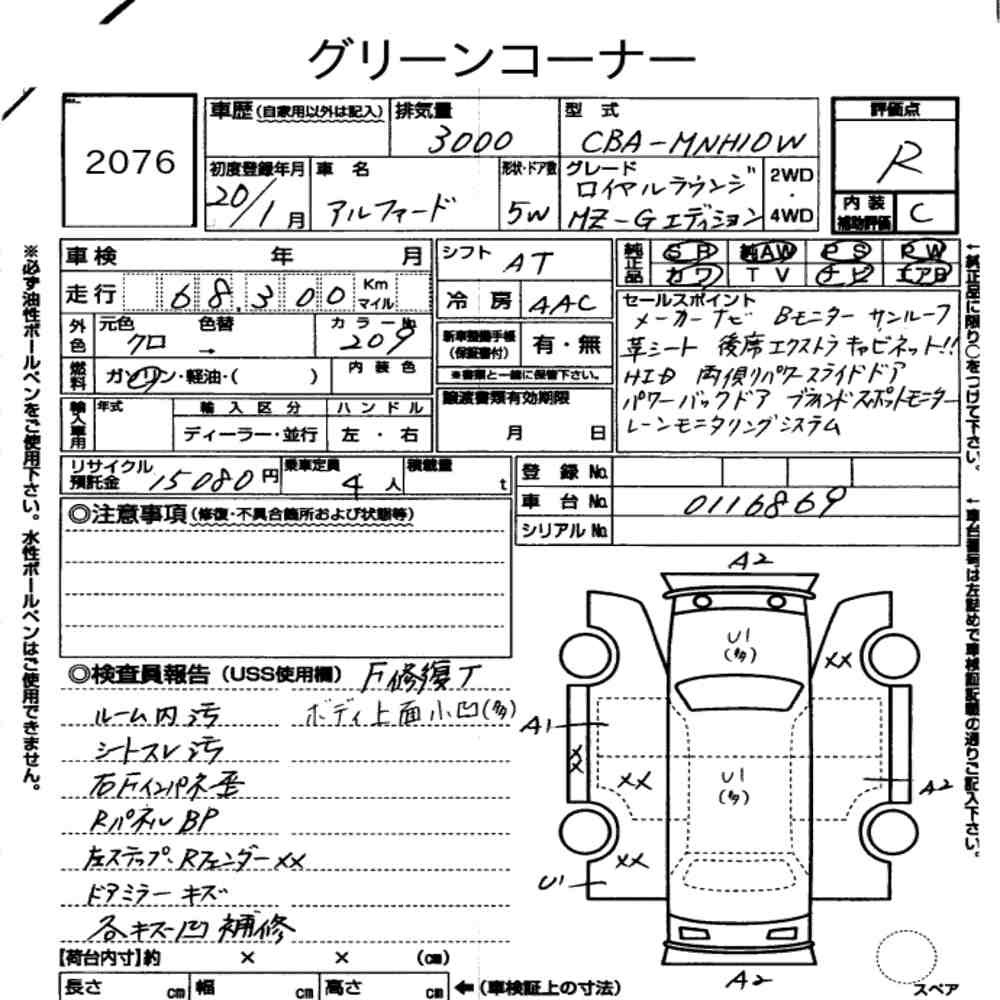 グリーンコーナー
2076
車歴 (自家用以外は記入)
排気量
3000
型 式
CBA-MNH10W
評価点
R
初度登録年月
20/1月
車 名
アルファード
形状・ドア数
5W
グレード
ロイヤルラウンジ
MZ-Gエディション
2WD
・
4WD
内 装
補助評価
C
車検 年 月
シフト
AT
純正品
SR 純AW PS PW
カワ TV ナビ エアB
走行 68,300 Km
マイル
冷 房
AAC
セールスポイント
メーカーナビ Bモニター サンルーフ
革シート 後席エクストラキャビネット!!
HID 両側パワースライドドア
パワーバックドア ブラインドスポットモニター
レーンモニタリングシステム
外色
元色
クロ
色替
→
カラーNo.
209
新車整備手帳
(保証書付)
有・無
※書類と一緒に保管下さい。
燃料
ガソリン・軽油・( )
内 装 色
譲渡書類有効期限
月 日
輸入車用
年式
輸 入 区 分
ハ ン ド ル
ディーラー・並行
左 ・ 右
リサイクル
預託金
15080円
乗車定員
4人
積載量
t
登 録 No.
車 台 No.
0116869
シリアルNo.
◎注意事項(修復・不具合箇所および状態等)
◎検査員報告(USS使用欄)
F修復丁
ルーム内 汚
ボディ上面小凹(多)
シートスレ 汚
右Fインパネ歪
Rパネル BP
左ステップ、Rフェンダー XX
ドアミラー キズ
各キズ凹 補修
A2
U1
(多)
XX
A1
XX
XX
U1
(多)
A2
XX
U1
A2
スペア
【荷台内寸】約 × × (cm)
長さ cm
幅 cm
高さ cm
←(車検証上の寸法)
※必ず油性ボールペンをご使用下さい。水性ボールペンはご使用できません。
←純正品に限り○をつけて下さい。
←車台番号は左詰めで車検証記載の通りご記入下さい。